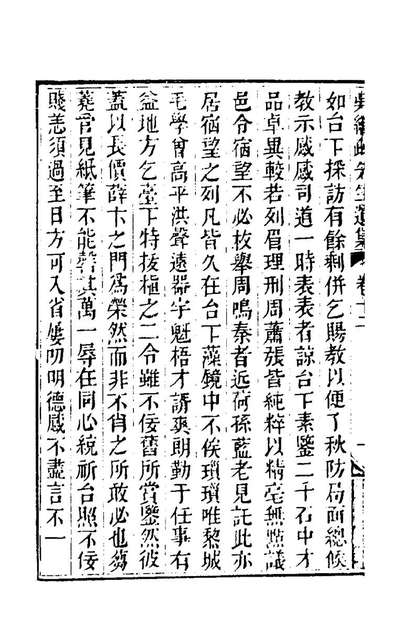 吳繼疎先生遺集 卷十一
如台下採訪有餘剩併乞賜教以便了秋防局面總候
教示感感司道一時表表者諒台下素鑒二千石中才
品卓異較若列眉理刑周蕭張皆純粹以精毫無點議
邑令宿望不必枚舉周鳴秦者远荷孫藍老見託此亦
居宿望之列凡皆久在台下藻鏡中不俟瑣瑣唯黎城
毛學曾高平洪聲遠器宇魁梧才諝爽朗勤于任事有
益地方乞臺下特拔植之二令雖不佞舊所賞鑒然彼
蓋以長價薛卞之門爲榮然而非不肖之所敢必也芻
蕘官見紙筆不能罄其萬一辱在同心統祈台照不佞
賤恙須過至日方可入省媿叨明德感不盡言不一